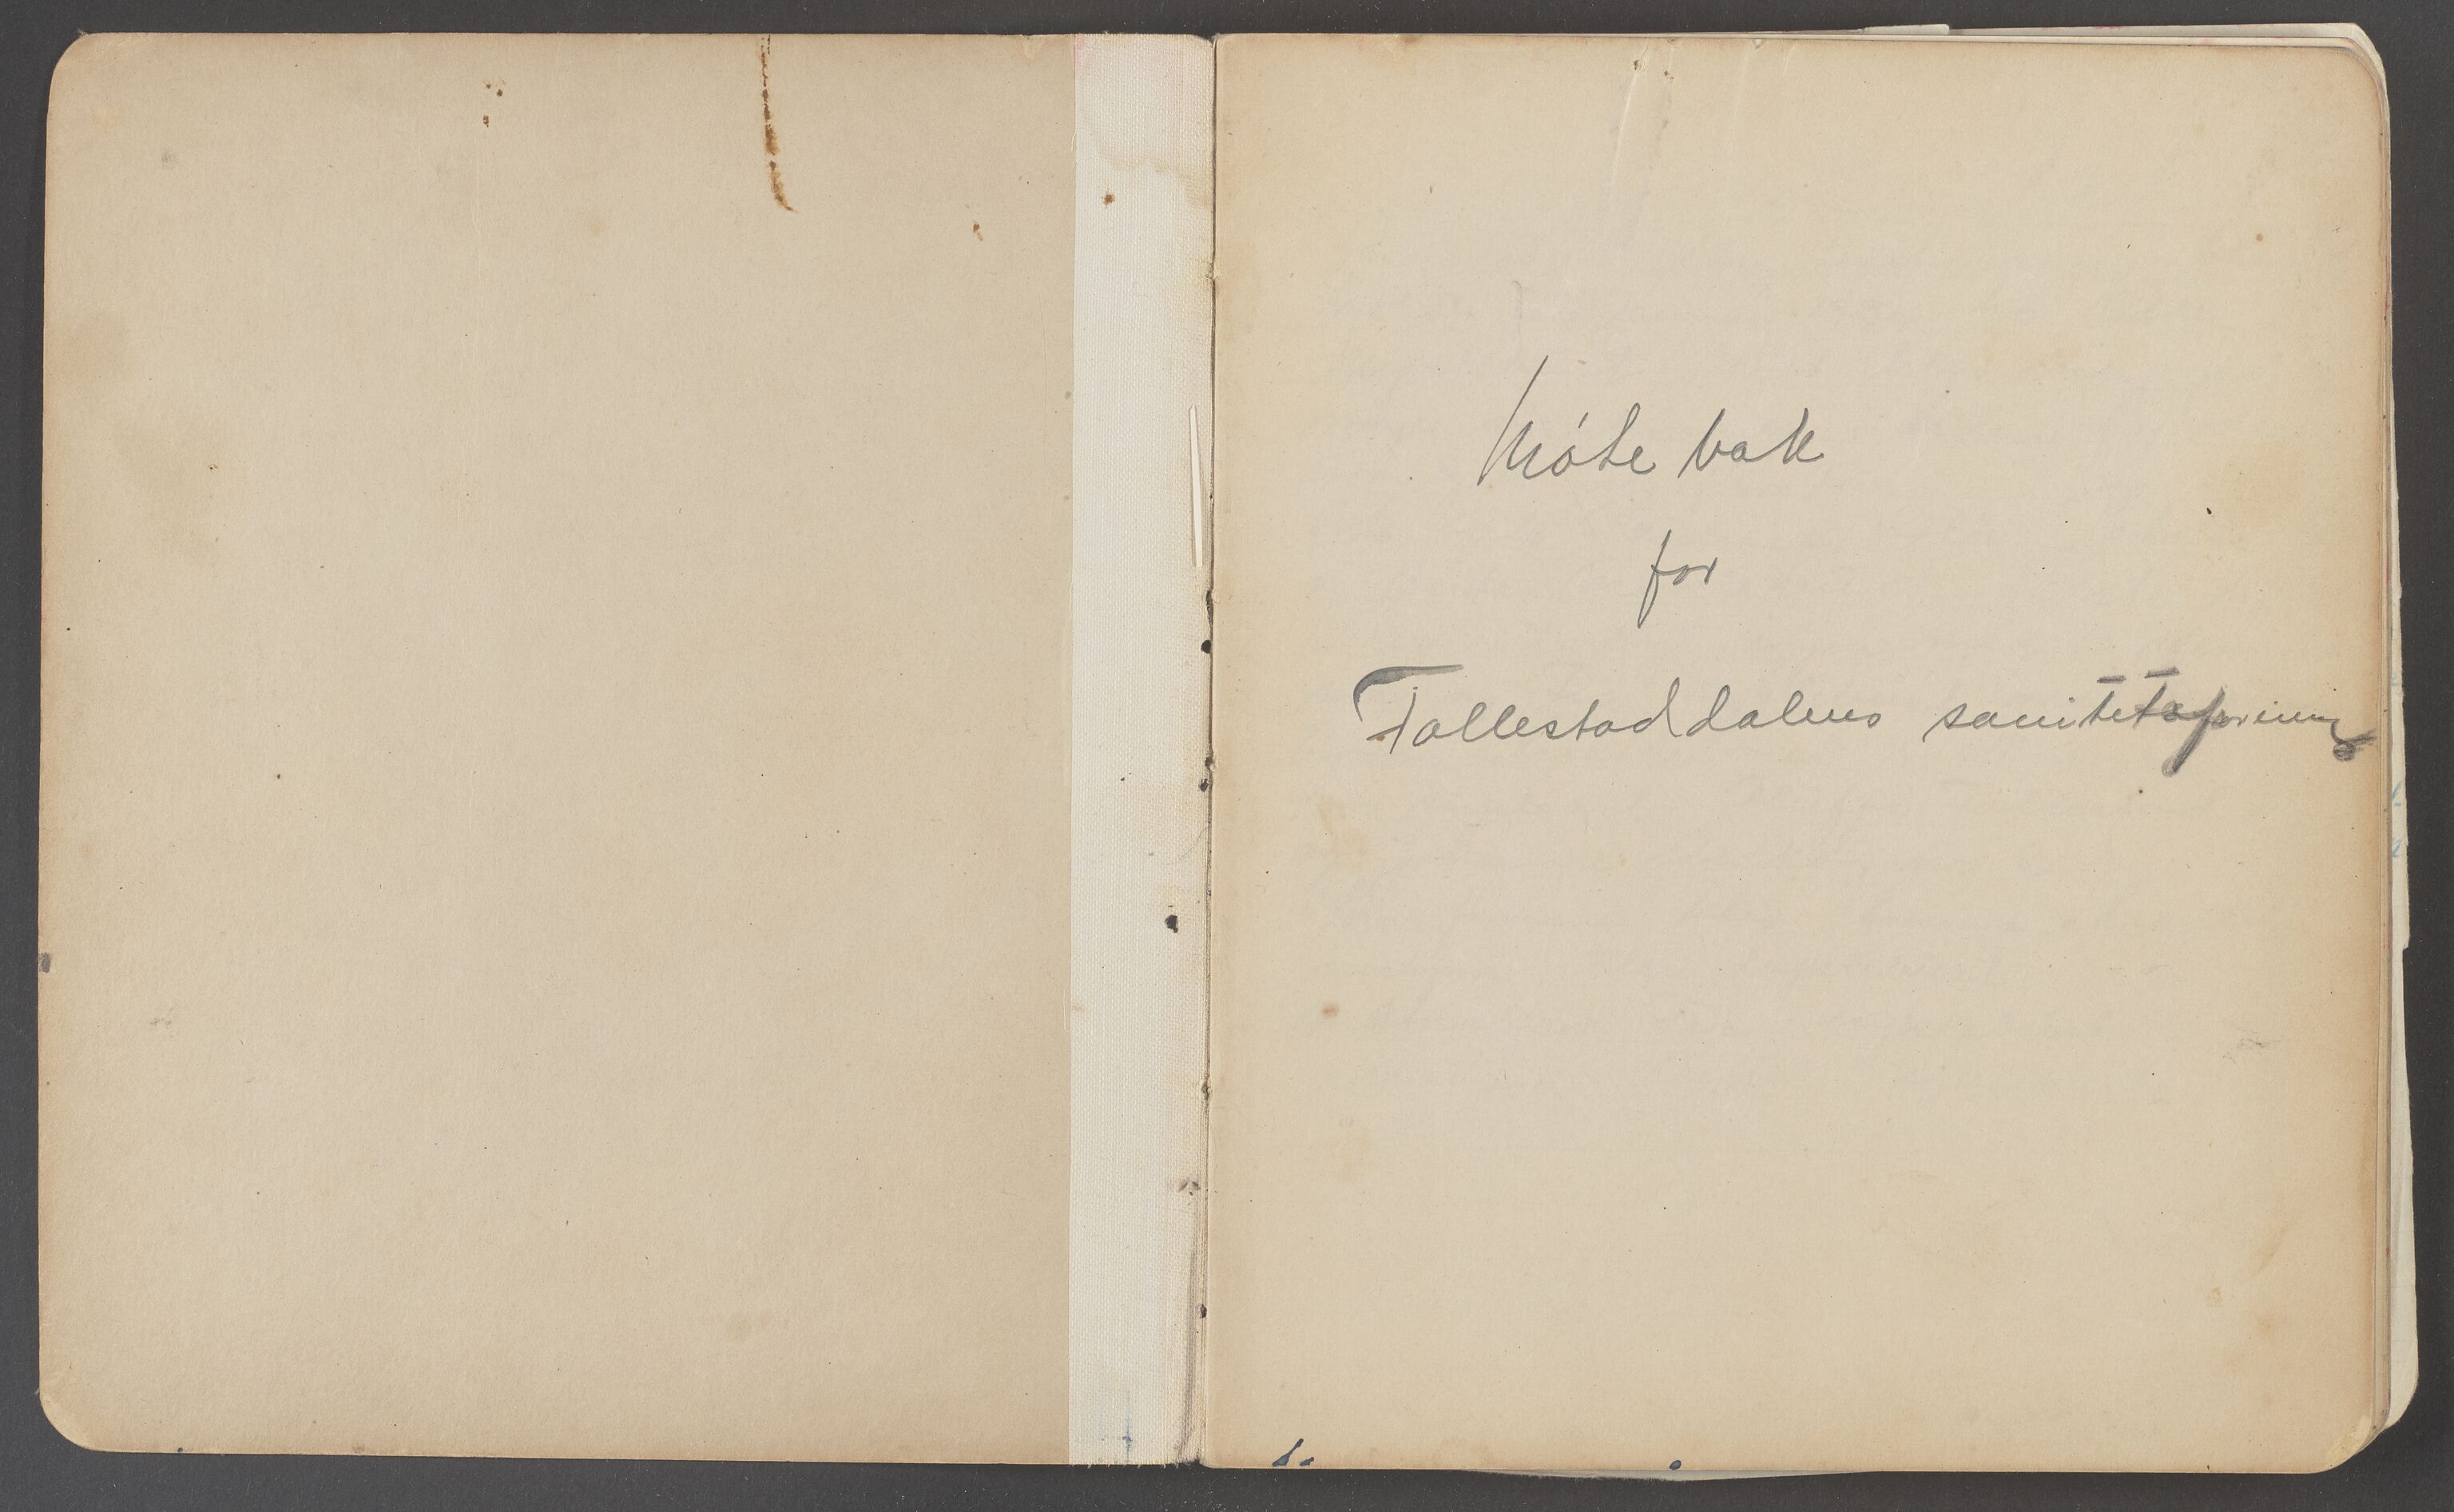 Móte bok
for
Follestaddalens sanitetsforining